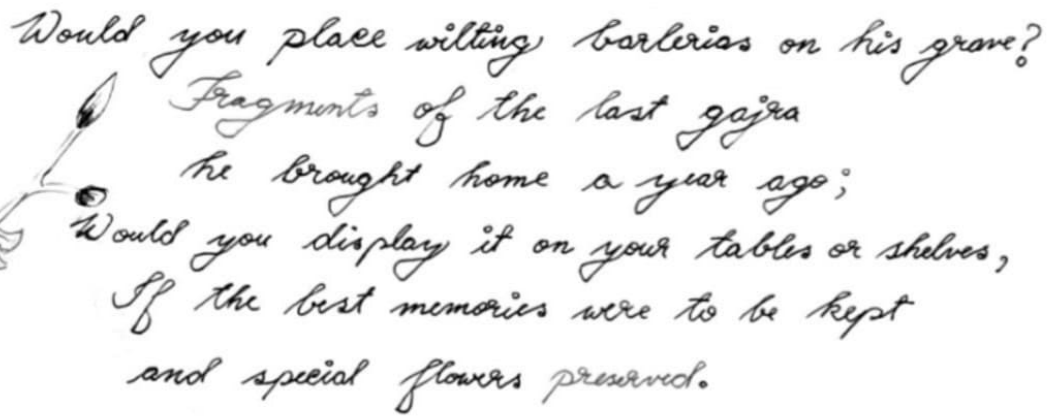 Would you place wilting barlerias on his grave?
Fragments of the last gajra
he brought home a year ago;
Would you display it on your tables or shelves,
If the best memories were to be kept
and special flowers preserved.